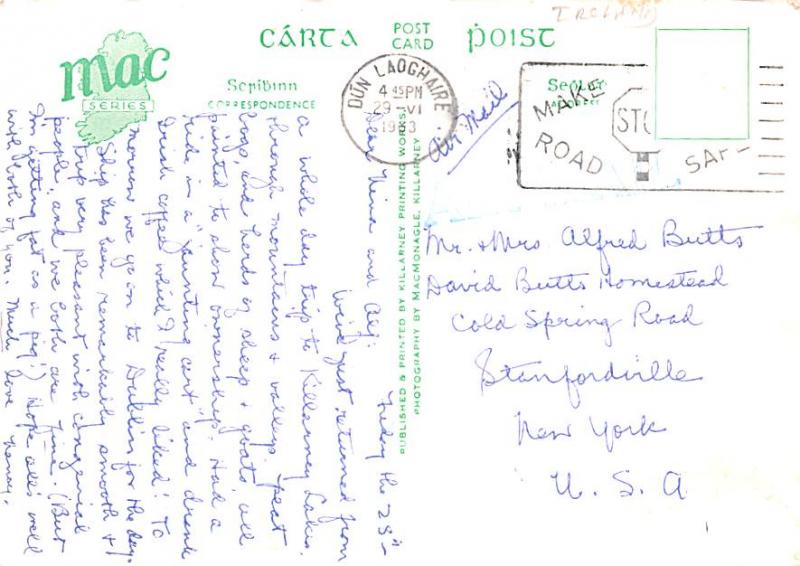 IRELAND
mac
SERIES
CÁRTA POST CARD POIST
Scríbinn
CORRESPONDENCE
DÚN LAOGHAIRE
4 45PM
29 VI
MAKE
ROAD
SAFE
Air Mail
PUBLISHED & PRINTED BY KILLARNEY PRINTING WORKS.
PHOTOGRAPHY BY MACMONAGLE, KILLARNEY
Friday the 28th
Dear Nina and Alf:
We've just returned from
a whole day trip to Killarney Lakes.
through mountains & valleys, peat
bogs, and herds of sheep & goats all
painted to show ownership. Had a
ride in a "jaunting cart" and drank
Irish coffee which I really liked! To
morrow we go on to Dublin for the day.
Ship has been remarkably smooth &
trip very pleasant with congenial
people, and we both are fine. (But
I'm getting fat as a pig!) Hope all's well
with both of you. Much love Nancy.
Mr. & Mrs. Alfred Butts
David Butts Homestead
Cold Spring Road
Stanfordville
New York
U. S. A